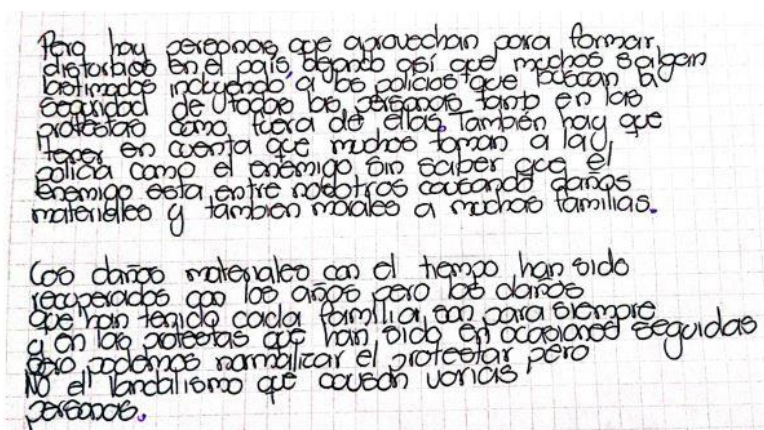 Pero hay personas que aprovechan para formar
disturbios en el país, dejando así que muchos salgan
lastimados incluyendo a los policías que buscan la
seguridad de todas las personas tanto en las
protestas como fuera de ellas. También hay que
tener en cuenta que muchos toman a la
policía como el enemigo sin saber que el
enemigo esta entre nosotros causando daños
materiales y tambien morales a muchas familias.
Los daños materiales con el tiempo han sido
recuperados con los años pero los daños
que han tenido cada familia son para siempre
y en las protestas que han sido en ocasiones seguidas
pero podemos normalizar el protestar pero
NO el vandalismo que causan varias
personas.